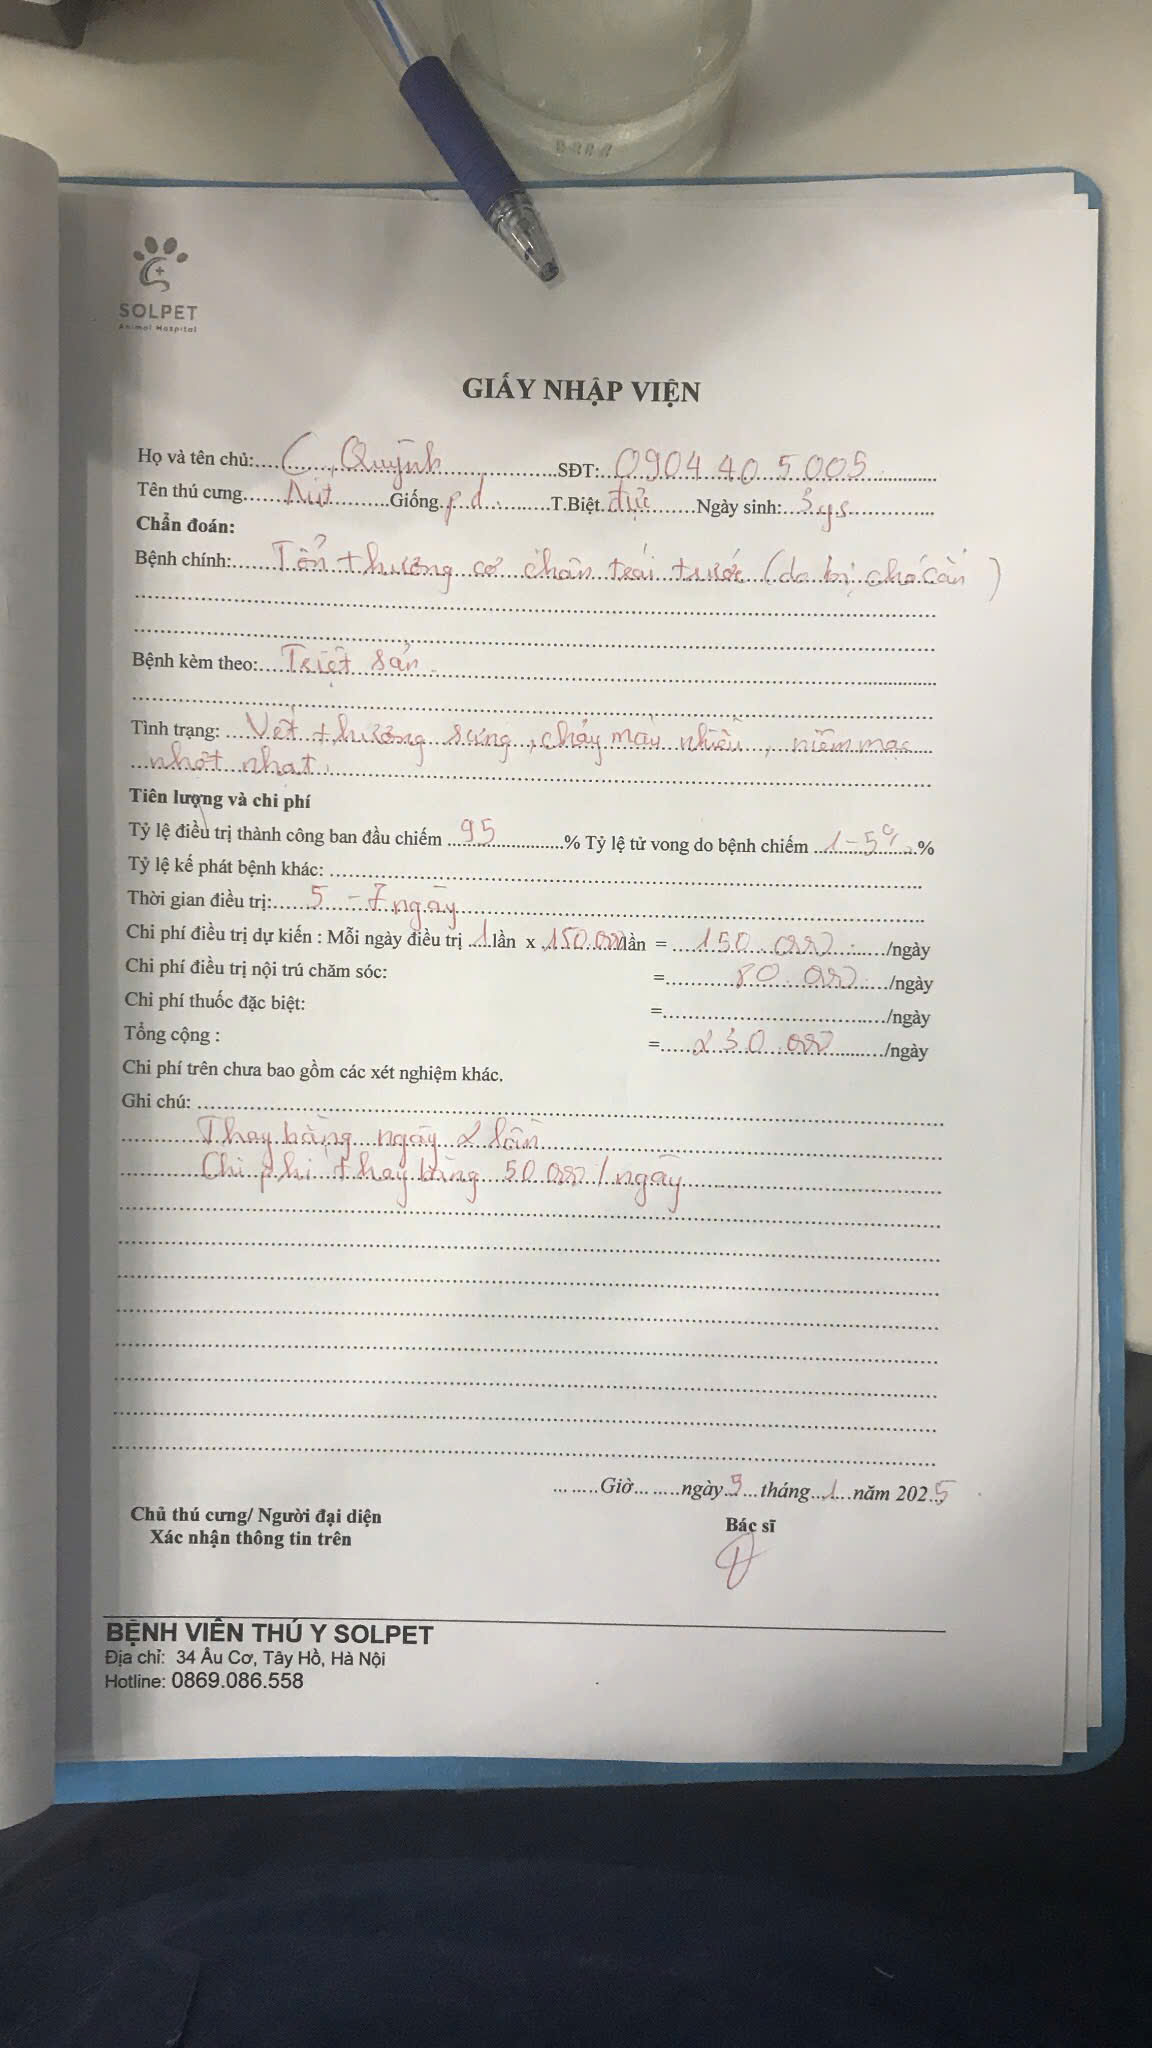 SOLPET
Animal Hospital
GIẤY NHẬP VIỆN
Họ và tên chủ: C Quỳnh SĐT: 0904 40 5005
Tên thú cưng Nút Giống p.d. T.Biệt đực Ngày sinh: 3ys
Chẩn đoán:
Bệnh chính: Tổn thương cơ chân trái trước (do bị chó cắn)
Bệnh kèm theo: Triệt sản.
Tình trạng: Vết thương sưng, chảy máy nhiều, niêm mạc
nhớt nhạt.
Tiên lượng và chi phí
Tỷ lệ điều trị thành công ban đầu chiếm 95 % Tỷ lệ tử vong do bệnh chiếm 1-5% %
Tỷ lệ kế phát bệnh khác:
Thời gian điều trị: 5 - 7 ngày
Chi phí điều trị dự kiến : Mỗi ngày điều trị 1 lần x 150.000 lần = 150.000 /ngày
Chi phí điều trị nội trú chăm sóc: = 80.000 /ngày
Chi phí thuốc đặc biệt: = /ngày
Tổng cộng : = 230.000 /ngày
Chi phí trên chưa bao gồm các xét nghiệm khác.
Ghi chú:
Thay băng ngày 2 lần
Chi phí thay băng 50.000 / ngày
Giờ ngày 9 tháng 1 năm 2025
Chủ thú cưng/ Người đại diện Bác sĩ
Xác nhận thông tin trên
BỆNH VIÊN THÚ Y SOLPET
Địa chỉ: 34 Âu Cơ, Tây Hồ, Hà Nội
Hotline: 0869.086.558